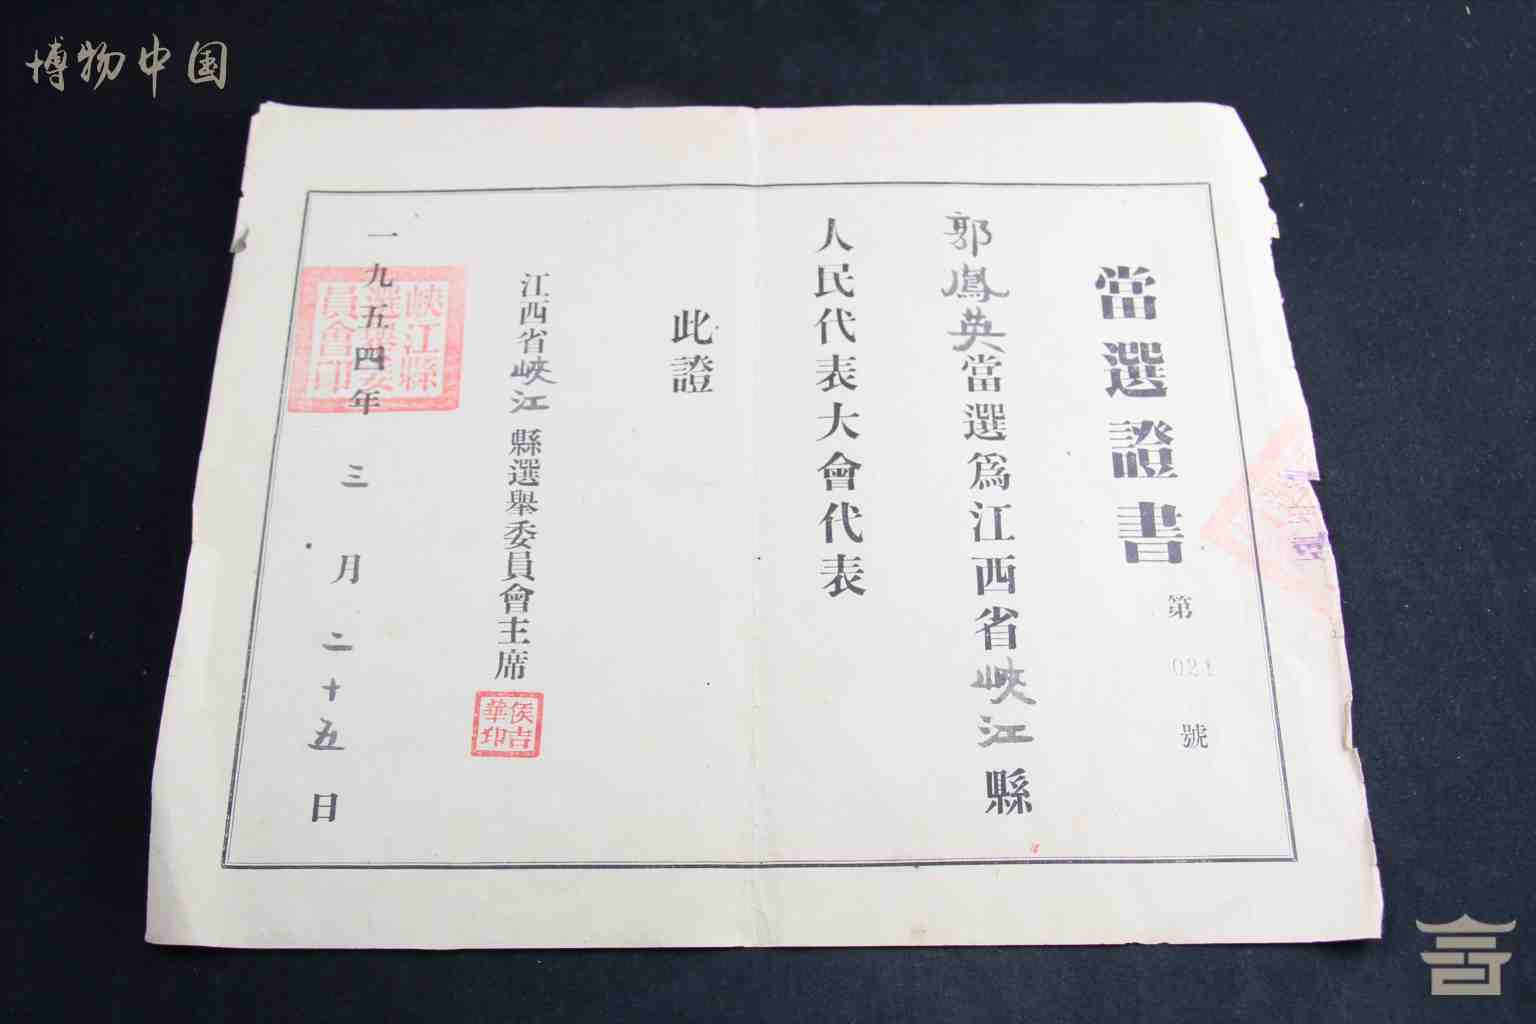 博物中国
當選證書
第 021 號
郭鳳英當選為江西省峽江縣
人民代表大會代表
此證
江西省峽江縣選舉委員會主席
侯吉華印
一九五四年三月二十五日
峽江縣選舉委員會印